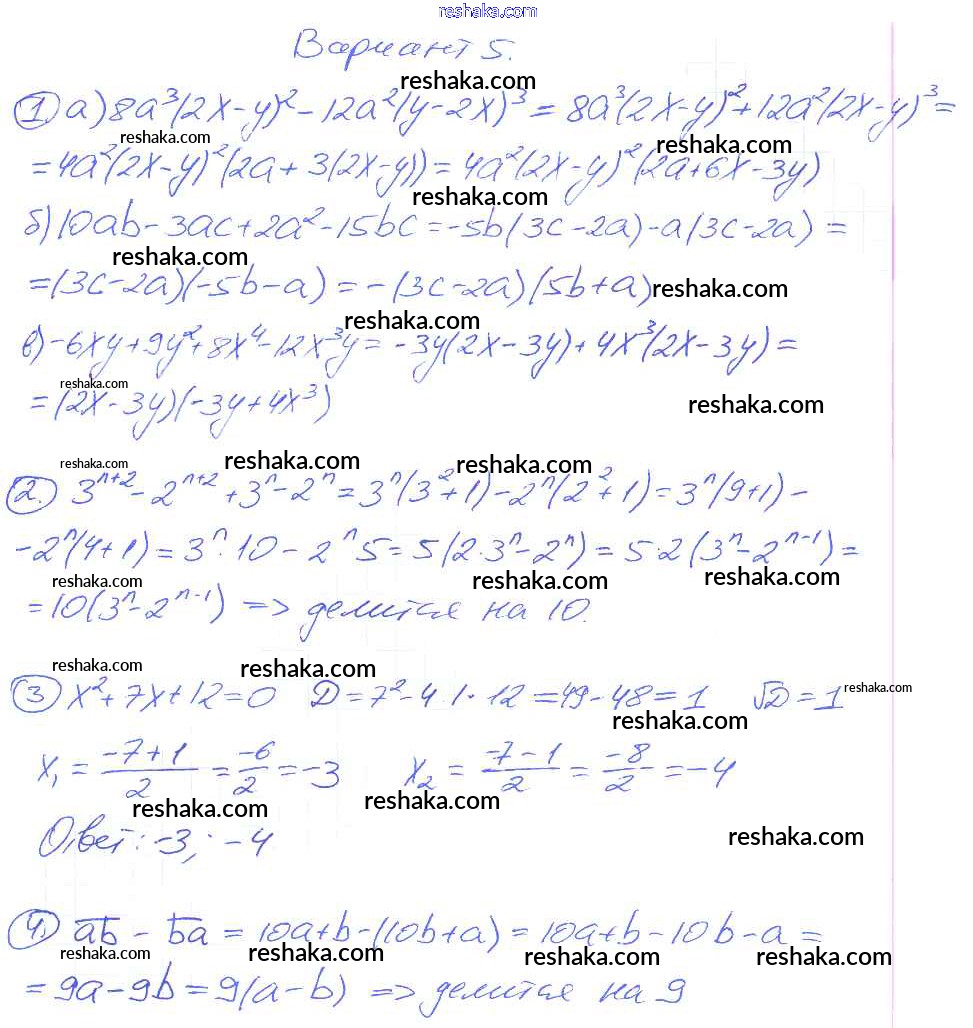 reshaka.com
Вариант 5.
reshaka.com
① а) 8a³(2x-y)² - 12a²(y-2x)³ = 8a³(2x-y)² + 12a²(2x-y)³ =
reshaka.com reshaka.com
= 4a²(2x-y)²(2a + 3(2x-y)) = 4a²(2x-y)²(2a+6x-3y)
reshaka.com
б) 10ab - 3ac + 2a² - 15bc = -5b(3c-2a) - a(3c-2a) =
reshaka.com
= (3c-2a)(-5b-a) = -(3c-2a)(5b+a) reshaka.com
reshaka.com
в) -6xy + 9y² + 8x⁴ - 12x³y = -3y(2x-3y) + 4x³(2x-3y) =
reshaka.com
= (2x-3y)(-3y+4x³) reshaka.com
reshaka.com reshaka.com reshaka.com
②. 3ⁿ⁺² - 2ⁿ⁺² + 3ⁿ - 2ⁿ = 3ⁿ(3²+1) - 2ⁿ(2²+1) = 3ⁿ(9+1) -
- 2ⁿ(4+1) = 3ⁿ·10 - 2ⁿ5 = 5(2·3ⁿ - 2ⁿ) = 5·2(3ⁿ - 2ⁿ⁻¹) =
reshaka.com reshaka.com reshaka.com
= 10(3ⁿ - 2ⁿ⁻¹) => делится на 10.
reshaka.com reshaka.com
③ x² + 7x + 12 = 0 D = 7² - 4·1·12 = 49 - 48 = 1 √D = 1 reshaka.com
reshaka.com
x₁ = (-7+1)/2 = -6/2 = -3 x₂ = (-7-1)/2 = -8/2 = -4
reshaka.com reshaka.com
Ответ: -3; -4 reshaka.com
④. a̅b̅ - b̅a̅ = 10a+b-(10b+a) = 10a+b-10b-a =
reshaka.com reshaka.com reshaka.com reshaka.com
= 9a - 9b = 9(a-b) => делится на 9